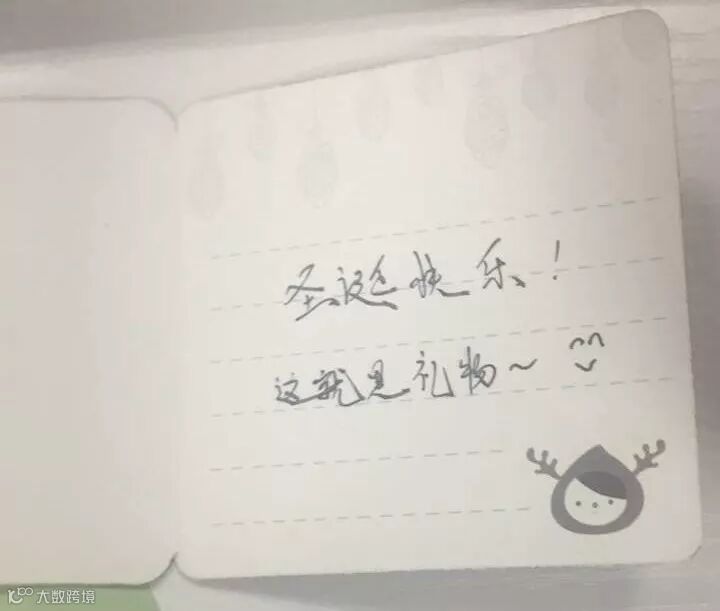 圣诞快乐！
这就是礼物～
大数跨境